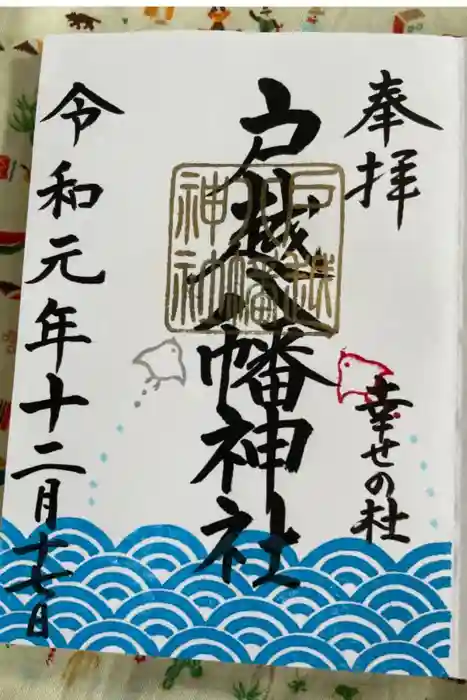 奉拝
幸せの杜
戸越八幡神社
戸越八幡神社
令和元年十二月十七日